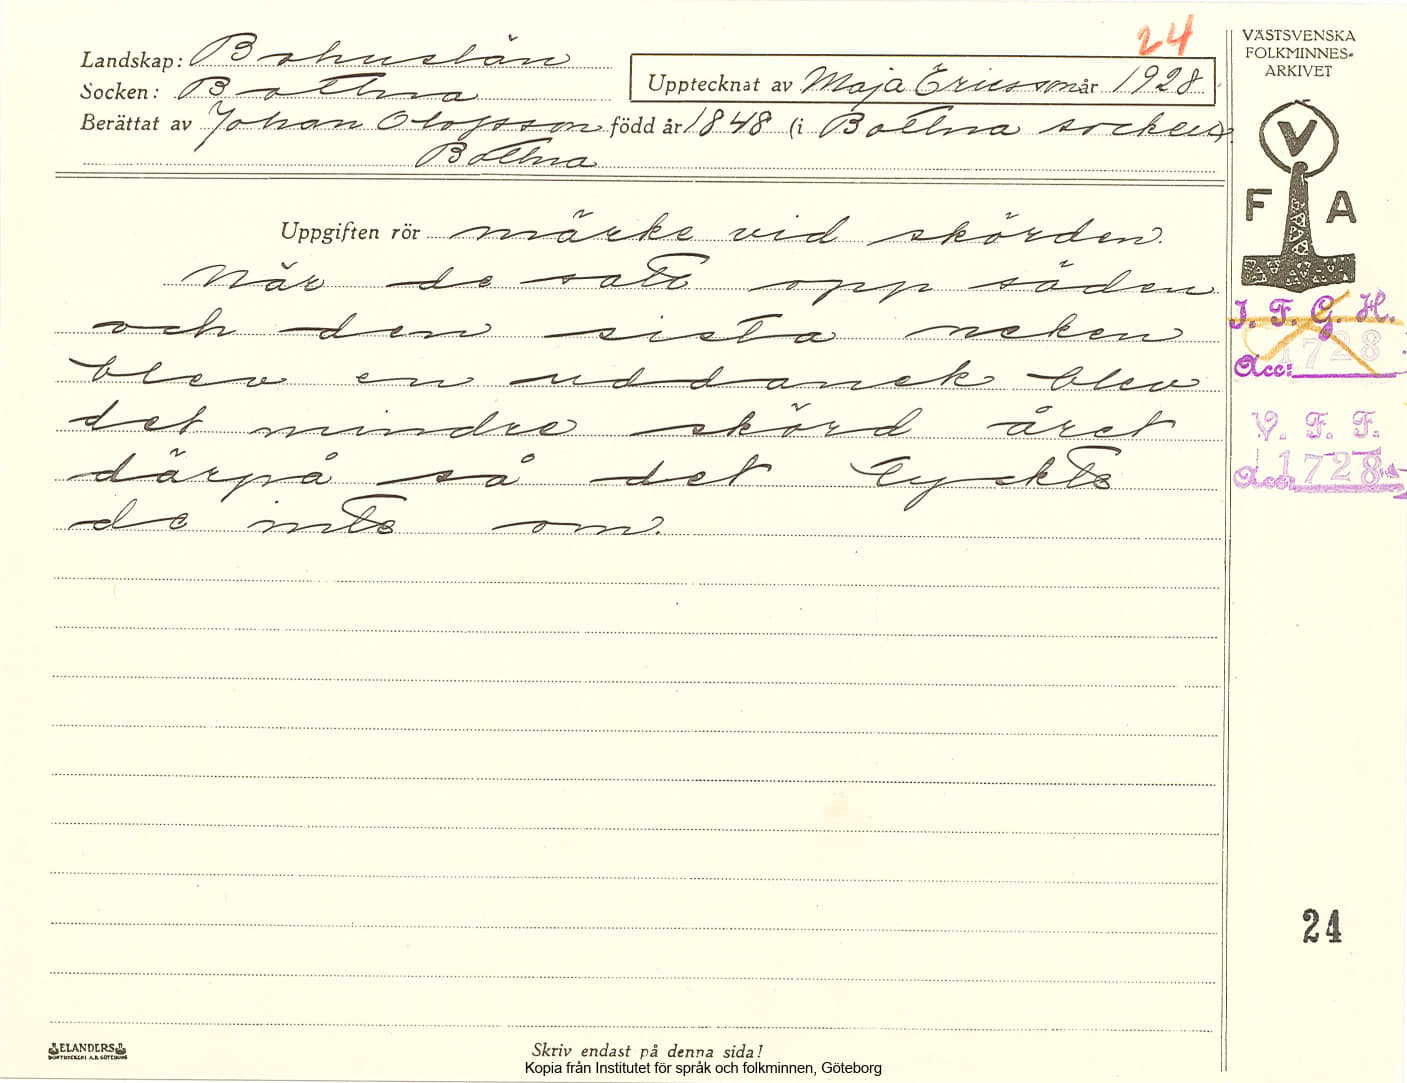 24
Landskap: Bohuslän
Socken: Bottna
Upptecknat av Maja Ericsson år 1928
Berättat av Johan Olofsson född år 1848 (i Bottna socken)
Bottna
Uppgiften rör märke vid skörden.
När de satt opp säden
och den sista neken
blev en uddanek blev
det mindre skörd året
därpå så det tyckte
de inte om.
VÄSTSVENSKA
FOLKMINNES-
ARKIVET
V
F A
I. F. G. H.
1728
Acc:
V. F. F.
Acc. 1728
24
ELANDERS
BOKTRYCKERI A.B. GÖTEBORG
Skriv endast på denna sida!
Kopia från Institutet för språk och folkminnen, Göteborg